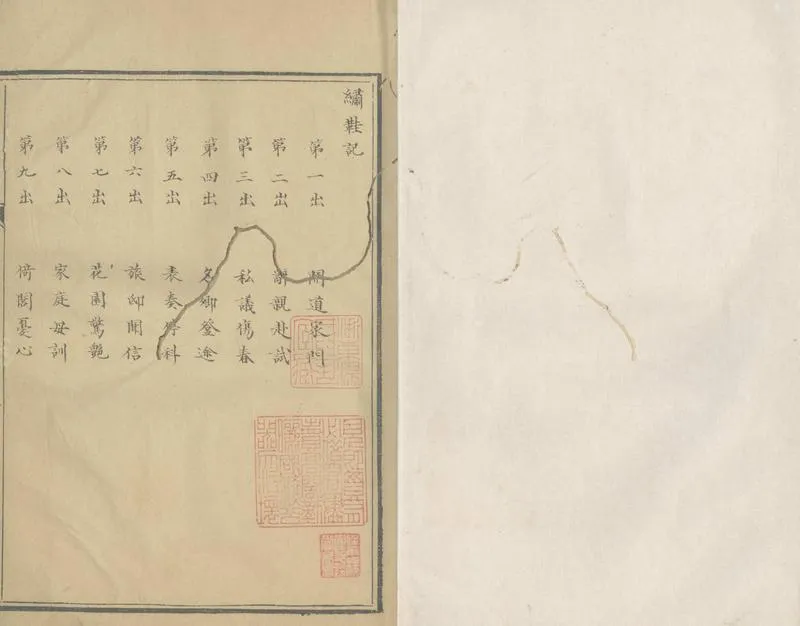 繡鞋記
第一出 開道家門
第二出 辭親赴試
第三出 私議傷春
第四出 名卿登途
第五出 表奏停科
第六出 旅邸聞信
第七出 花園驚艷
第八出 家庭母訓
第九出 倚閣憂心